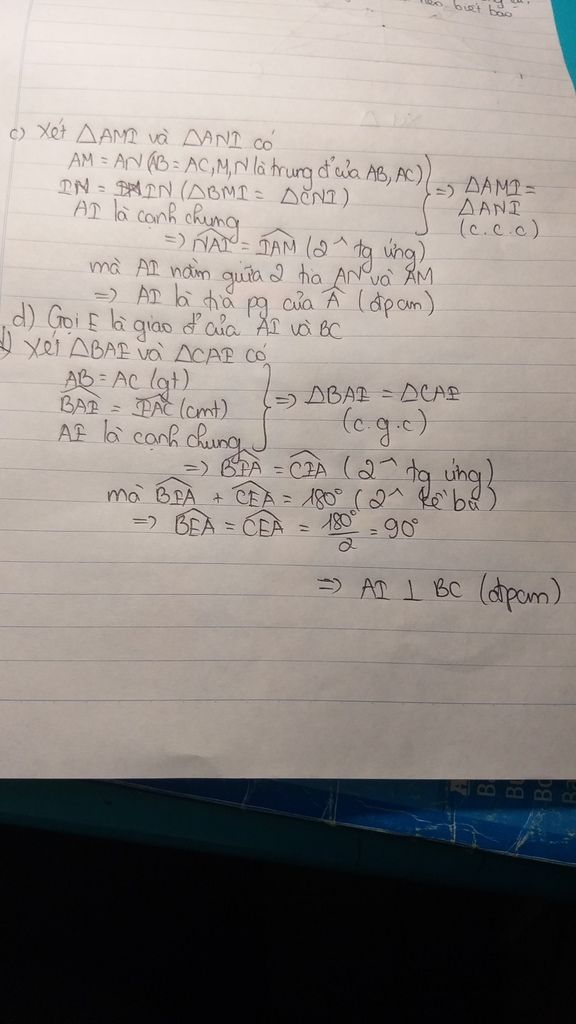 nên biết bao
c) Xét △AMI và △ANI có
AM = AN (AB = AC, M, N là trung đ' của AB, AC)
IN = IN (△BMI = △CNI)
AI là cạnh chung
=> △AMI =
△ANI
(c.c.c)
=> N̂AI = ÎAM (2^ tg ứng)
mà AI nằm giữa 2 tia AN và AM
=> AI là tia pg của Â (đpcm)
d) Gọi E là giao đ' của AI và BC
) Xét △BAI và △CAI có
AB = AC (gt)
B̂AI = ÎAC (cmt)
AI là cạnh chung
=> △BAI = △CAI
(c.g.c)
=> B̂IA = ĈIA (2^ tg ứng)
mà B̂EA + ĈEA = 180° (2^ kề bù)
=> B̂EA = ĈEA = 180°/2 = 90°
=> AI ⊥ BC (đpcm)